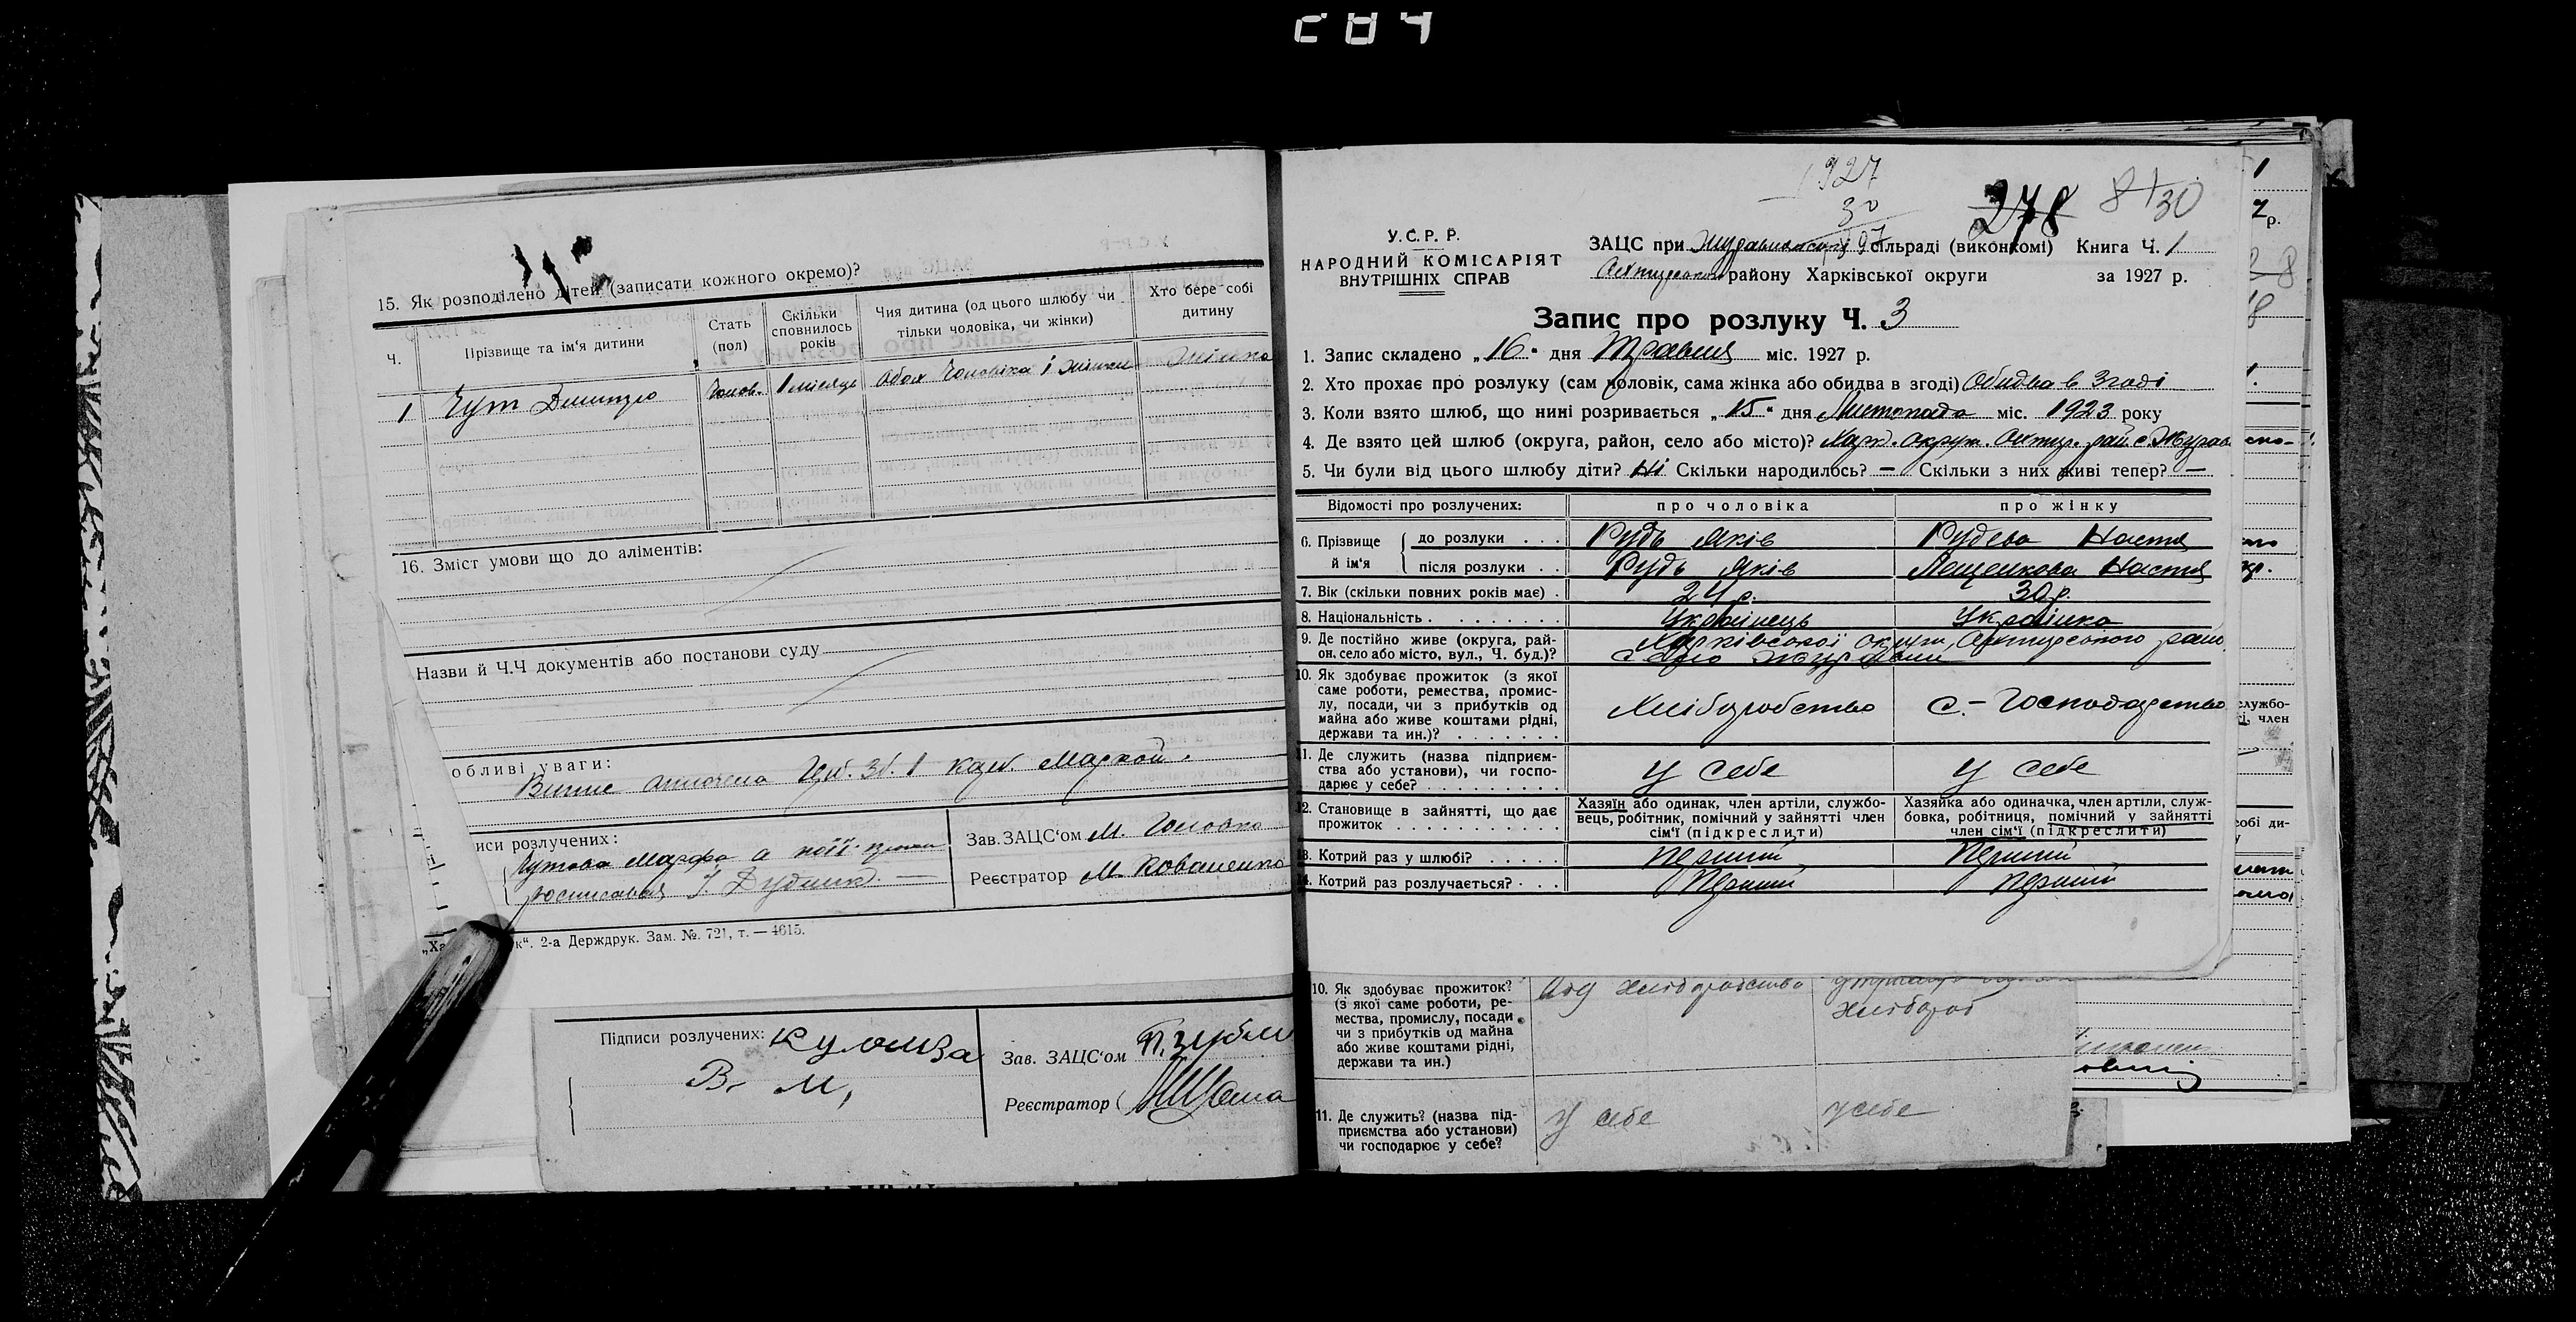 284
15. Як розподілено дітей (записати кожного окремо)?
Ч.
Прізвище та ім'я дитини
Стать (пол)
Скільки сповнилось років
Чия дитина (од цього шлюбу чи тільки чоловіка, чи жінки)
Хто бере собі дитину
1 Чут Дмитро Чолов. 1 місяць Обох Чоловіка і жінки Жінка
16. Зміст умови що до аліментів:
Назви й Ч.Ч документів або постанови суду
обливі уваги:
1 Марков.
иси розлучених:
Чутова Марфа а
Зав. ЗАЦС'ом М.
Реєстратор М. Коваленко
„Ха
к". 2-а Держдрук. Зам. №. 721, т. — 4615.
Підписи розлучених:
В. М,
Зав. ЗАЦС'ом
Реєстратор
1927
30
278 8+30
У.С.Р.Р.
НАРОДНИЙ КОМІСАРІЯТ
ВНУТРІШНІХ СПРАВ
ЗАЦС при сільраді (виконкомі) Книга Ч. 1
району Харківської округи за 1927 р.
Запис про розлуку Ч. 3
1. Запис складено „16" дня Травня міс. 1927 р.
2. Хто прохає про розлуку (сам чоловік, сама жінка або обидва в згоді) Обидва в згоді
3. Коли взято шлюб, що нині розривається „15" дня Листопада міс. 1923 року
4. Де взято цей шлюб (округа, район, село або місто)? Харк. округ. Охтир. рай. с Журав.
5. Чи були від цього шлюбу діти? Ні Скільки народилось? — Скільки з них живі тепер? —
Відомості про розлучених: про чоловіка про жінку
6. Прізвище й ім'я
до розлуки . . . Рудь Яків Рудева Настя
після розлуки . . Рудь Яків Лещенкова Настя
7. Вік (скільки повних років має) . 24 р. 30 р.
8. Національність . . . . . . . . Українець Українка
9. Де постійно живе (округа, рай-
он, село або місто, вул., Ч. буд.)?
Харківської округи, Охтирського район
село Журавлі
10. Як здобуває прожиток (з якої
саме роботи, ремества, промис-
лу, посади, чи з прибутків од
майна або живе коштами рідні,
держави та ин.)? . . . . . . .
Хліборобство С.-Господарство
11. Де служить (назва підприєм-
ства або установи), чи госпо-
дарює у себе? . . . . . . . . .
У себе У себе
12. Становище в зайнятті, що дає
прожиток . . . . . . . . . . .
Хазяїн або одинак, член артіли, службо-
вець, робітник, помічний у зайнятті член
сім'ї (підкреслити)
Хазяйка або одиначка, член артіли, служ-
бовка, робітниця, помічний у зайнятті
член сім'ї (підкреслити)
13. Котрий раз у шлюбі? . . . . . Перший Перший
14. Котрий раз розлучається? . . . Перший Перший
10. Як здобуває прожиток?
(з якої саме роботи, ре-
мества, промислу, посади
чи з прибутків од майна
або живе коштами рідні,
держави та ин.)
Од хліборобства
хлібороб
11. Де служить? (назва під-
приємства або установи)
чи господарює у себе?
У себе у себе
службо-
і, член
собі ди-